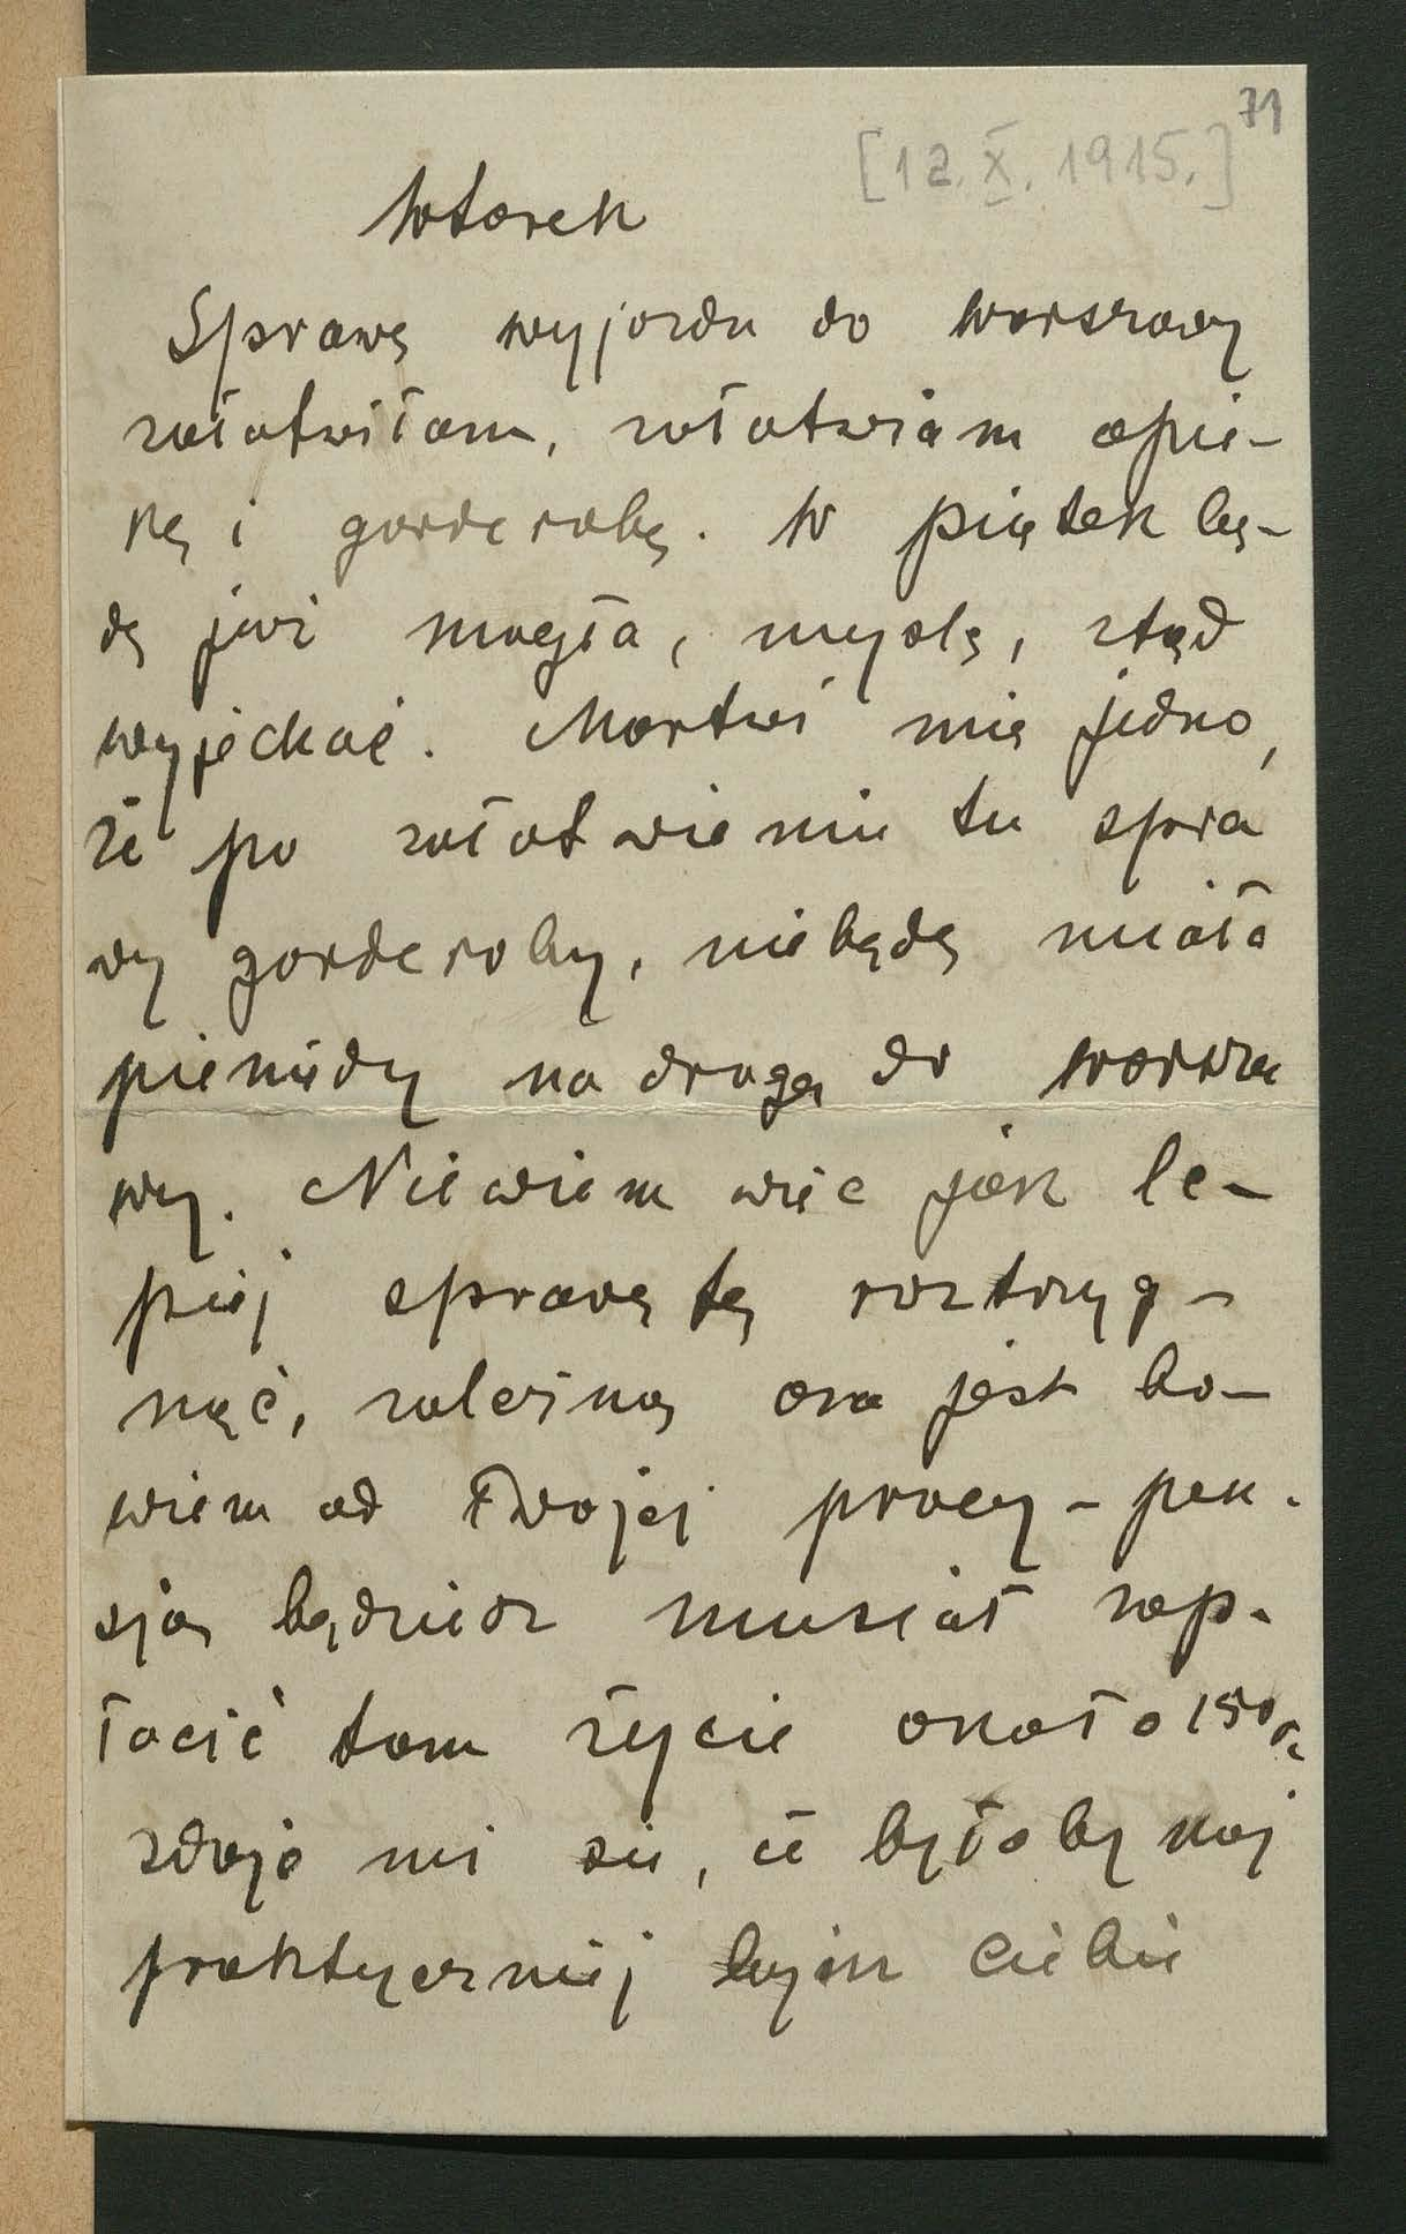 71
[12. X. 1915.]
Wtorek
Sprawę wyjazdu do Warszawy
załatwiłam, załatwiam opie-
kę i garderobę. W piątek bę-
dę już mogła, myślę, stąd
wyjechać. Martwi mię jedno,
że po załatwieniu tu spra
wy garderoby, niebędę miała
pieniędzy na drogę do Warsza
wy. Niewiem więc jak le-
piej sprawę tę roztrzyg-
nąć, zależną ona jest bo-
wiem od Twojej pracy - pen-
sją będziesz musiał zap-
łacić tam życie około 150
zdaje mi się, że byłoby naj
praktyczniej bym Ciebie